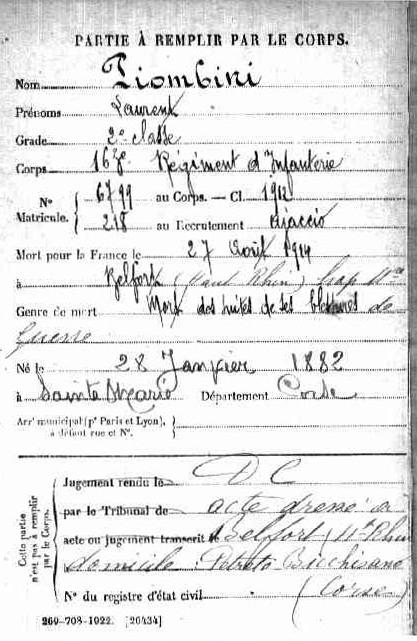 PARTIE À REMPLIR PAR LE CORPS.
Nom Piombini
Prénoms Laurent
Grade 2e classe
Corps 163e Régiment d'Infanterie
N° Matricule. 6799 au Corps. — Cl. 1912
218 au Recrutement Ajaccio
Mort pour la France le 27 Août 1914
à Belfort (Haut Rhin)
Genre de mort Mort des suites de ses blessures de
Guerre
Né le 28 Janvier 1882
à Sainte Marie Département Corse
Arrt municipal (pr Paris et Lyon),
à défaut rue et N°.
Cette partie n'est pas à remplir par le Corps.
Jugement rendu le D C
par le Tribunal de acte dressé a
acte ou jugement transcrit le Belfort (Ht Rhin
domicile Petreto Bicchisano
N° du registre d'état civil (Corse)
269-708-1922. [26434]